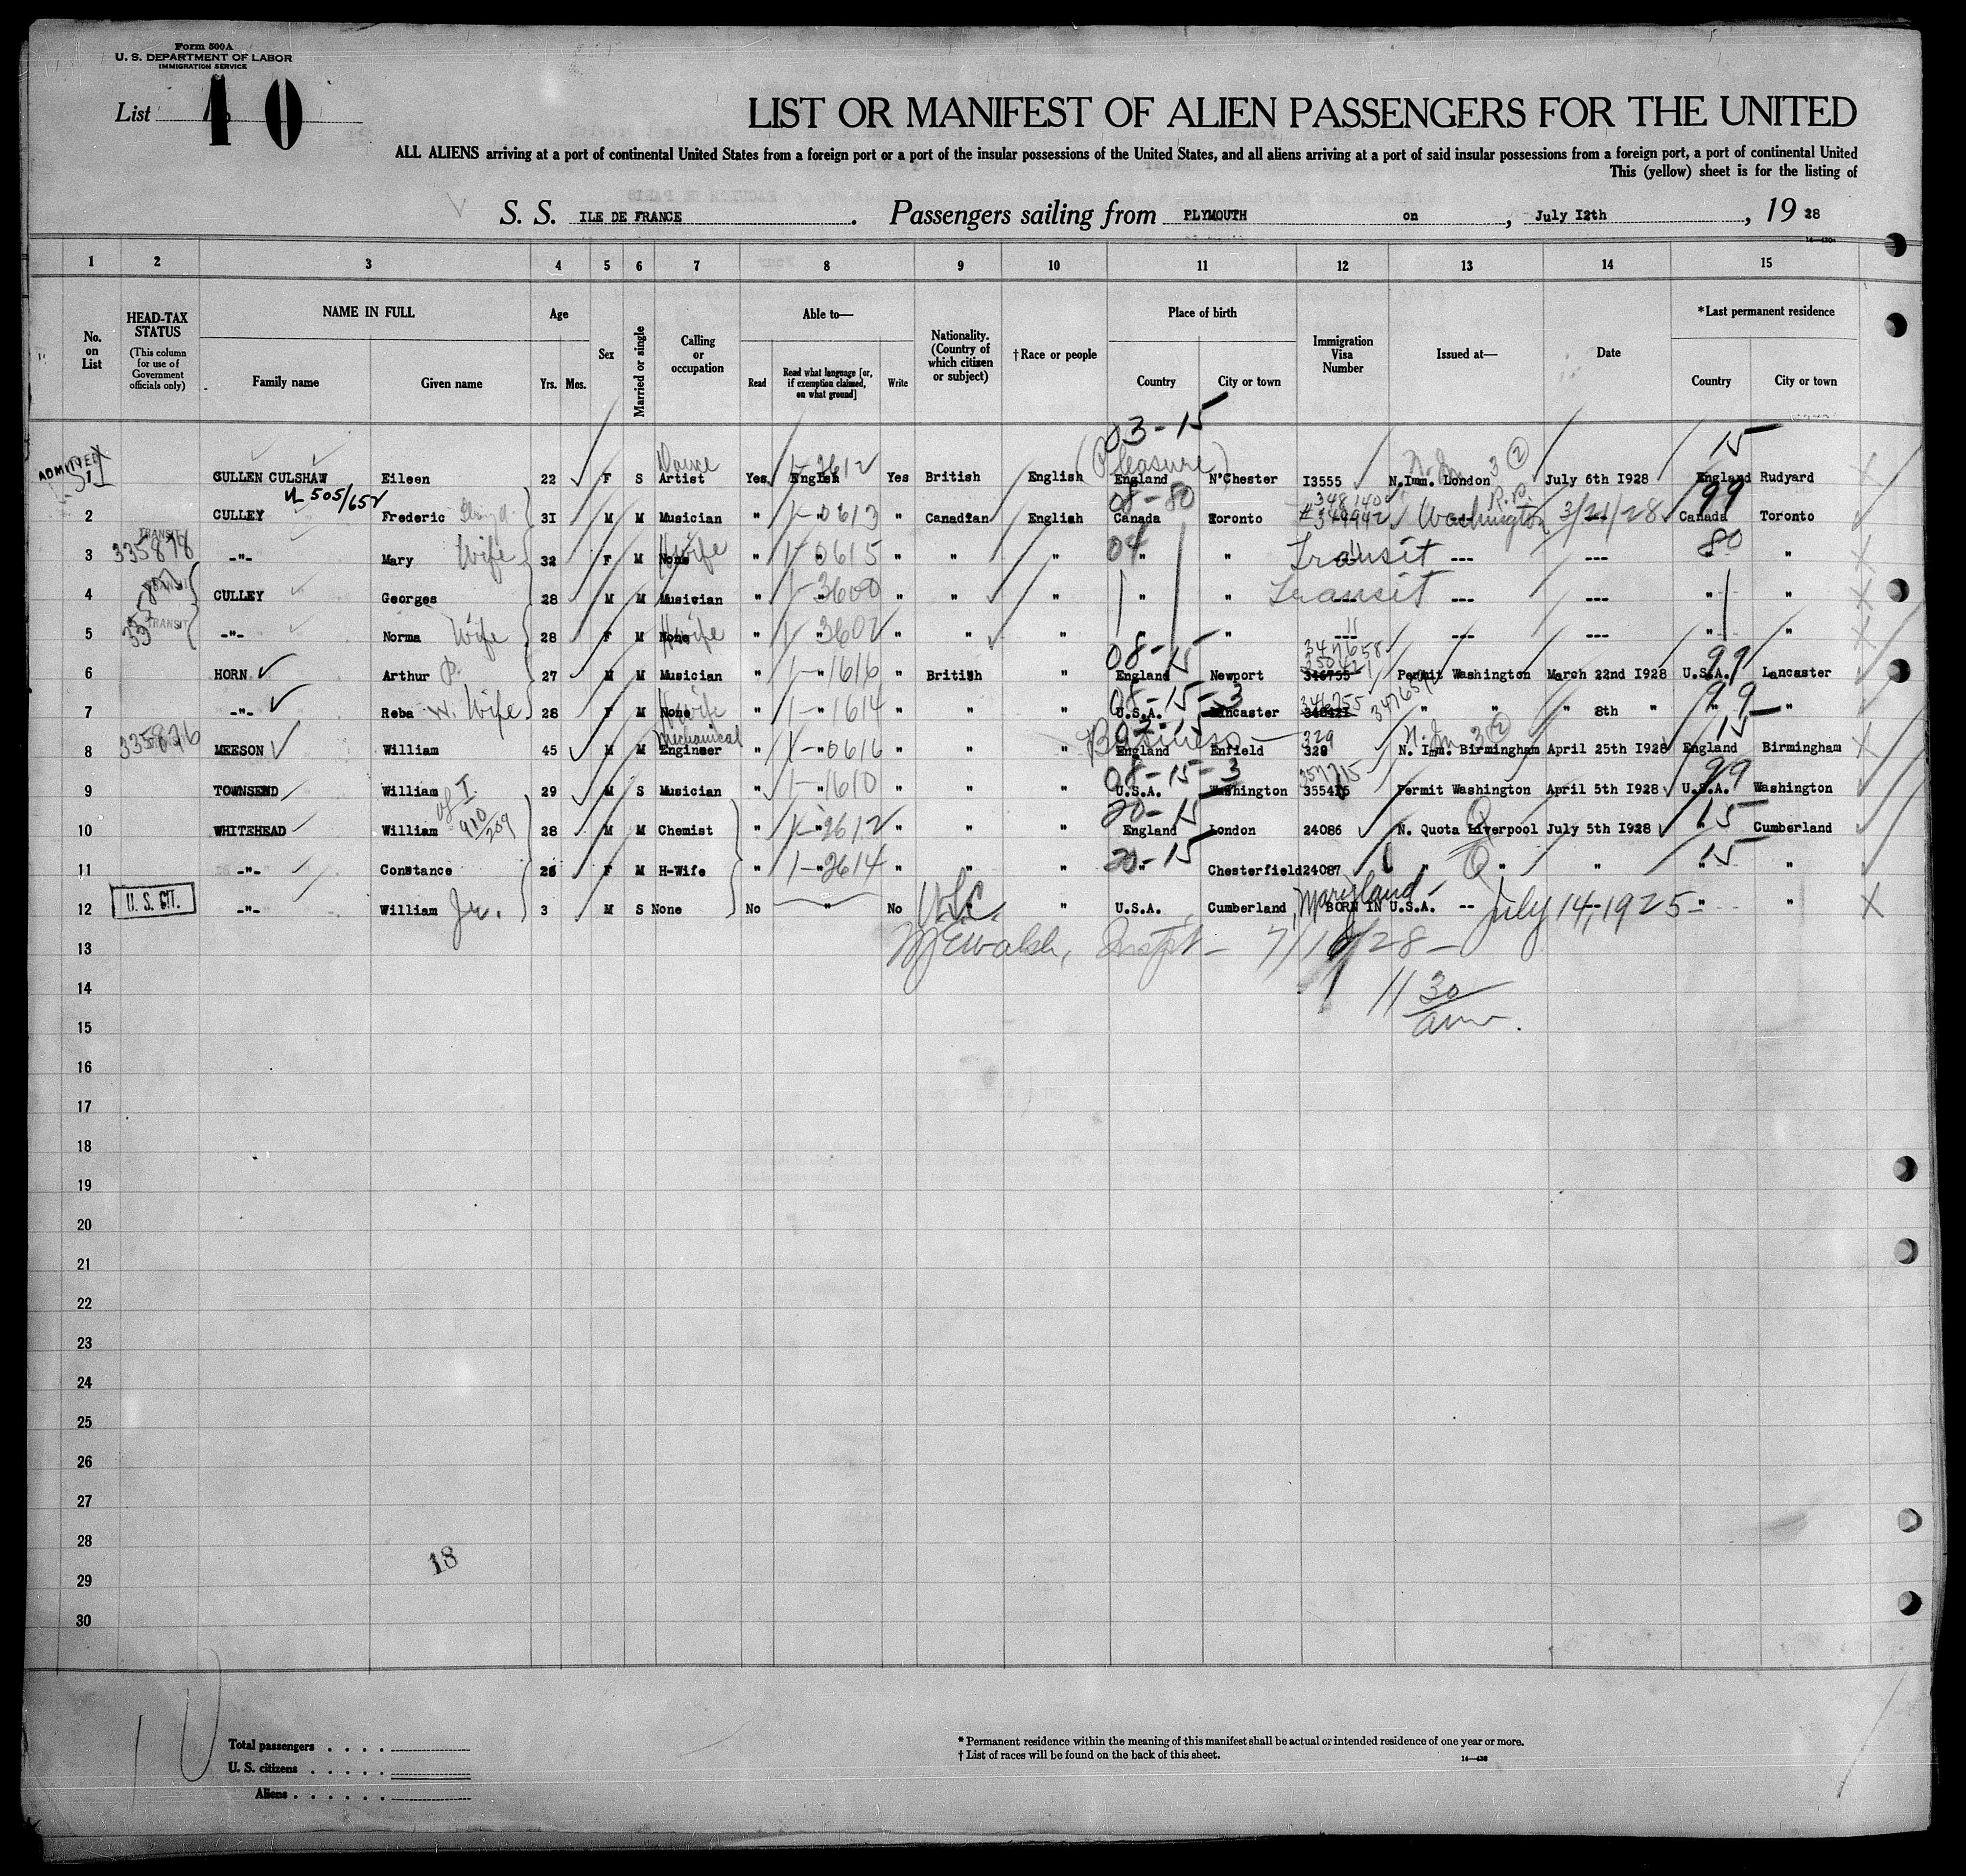 Form 500A
U. S. DEPARTMENT OF LABOR
IMMIGRATION SERVICE
List 10
LIST OR MANIFEST OF ALIEN PASSENGERS FOR THE UNITED
ALL ALIENS arriving at a port of continental United States from a foreign port or a port of the insular possessions of the United States, and all aliens arriving at a port of said insular possessions from a foreign port, a port of continental United
This (yellow) sheet is for the listing of
S. S. ILE DE FRANCE . Passengers sailing from PLYMOUTH on , July I2th , 19 28
1 2 3 4 5 6 7 8 9 10 11 12 13 14 15
No. on List
HEAD-TAX STATUS (This column for use of Government officials only)
NAME IN FULL
Family name Given name
Age
Yrs. Mos.
Sex
Married or single
Calling or occupation
Able to—
Read Read what language [or, if exemption claimed, on what ground] Write
Nationality. (Country of which citizen or subject)
†Race or people
Place of birth
Country City or town
Immigration Visa Number
Issued at—
Date
*Last permanent residence
Country City or town
03-15 15
ADMITTED Dance 1-2612 (Pleasure) 3 2
1 CULLEN CULSHAW Eileen 22 F S Artist Yes English Yes British English England N'Chester I3555 N.Imm. London July 6th I928 England Rudyard
505/652 08-80 348140 99
2 CULLEY Frederic 3I M M Musician " " 1-0613 " Canadian English Canada Toronto #349942 Washington 3/21/28 Canada Toronto
TRANSIT
335878
3 -"- Mary Wife 32 F M None Wife " " 1-0615 " " " 04 " " Transit --- --- 80 " "
TRANSIT
4 CULLEY Georges 28 M M Musician " " 1-3600 " " " " " Transit --- --- " "
TRANSIT
5 -"- Norma Wife 28 F M None Wife " " 1-3602 " " " " " --- --- --- " "
08-15 347658 99
6 HORN Arthur P. 27 M M Musician " " 1-1616 " British " England Newport 350421 346755 Permit Washington March 22nd I928 U.S.A. Lancaster
08-15-3 99
7 -"- Reba W. Wife 28 F M None Wife " " 1-1614 " " " U.S.A. Lancaster 346755 347658 " " " 8th " " "
335876 Mechanical Business 329 3 2 15
8 MEESON William 45 M M Engineer " " 1-0616 " " " England Enfield 329 N. Imm. Birmingham April 25th I928 England Birmingham
08-15-3 357715 99
9 TOWNSEND William 29 M S Musician " " 1-1610 " " " U.S.A. Washington 355415 Permit Washington April 5th I928 U.S.A. Washington
of I 910/209 20-15 Q 15
10 WHITEHEAD William 28 M M Chemist " " 1-2612 " " " England London 24086 N. Quota Liverpool July 5th I928 " Cumberland
20-15 Q 15
11 -"- Constance F M H-Wife " " 1-2614 " " " " Chesterfield 24087 " " " " "
U. S. CIT.
12 -"- William Jr. 3 M S None No " No USC " U.S.A. Cumberland, Maryland - BORN IN U.S.A. -- July 14, 1925 - " "
13 Inspt - 7/18/28 -
14 11 30
15 am.
16
17
18
19
20
21
22
23
24
25
26
27
28
18
29
30
10
Total passengers . . . .
U. S. citizens . . . . .
Aliens . . . . . .
* Permanent residence within the meaning of this manifest shall be actual or intended residence of one year or more.
† List of races will be found on the back of this sheet.